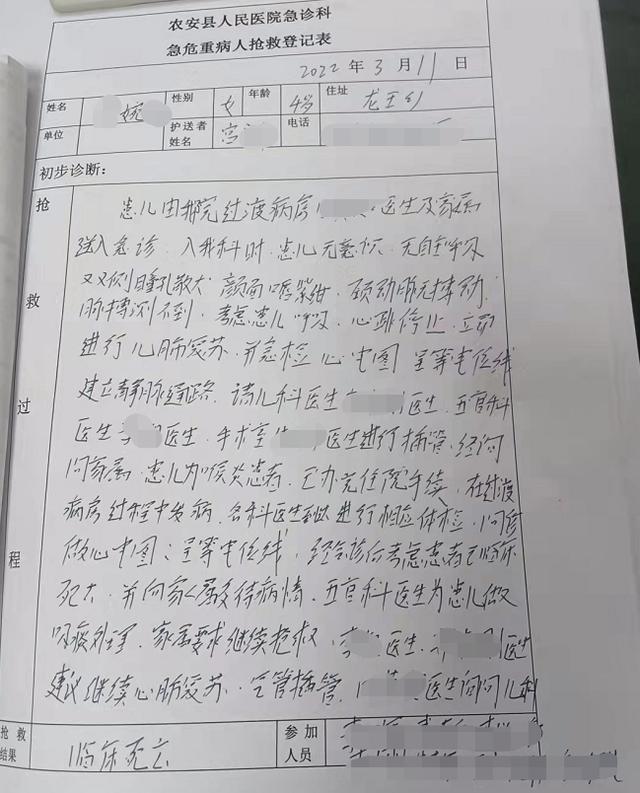 农安县人民医院急诊科
急危重病人抢救登记表
2022 年 3 月 11 日
姓名 婉 性别 女 年龄 4岁 住址 龙王乡
单位 护送者姓名 宫 电话
初步诊断：
抢救过程
患儿由我院过渡病房 医生及家属
送入急诊，入我科时，患儿无意识，无自主呼吸
双侧瞳孔散大，颜面口唇紫绀，颈动脉无搏动，
脉搏测不到，考虑患儿呼吸，心跳停止，立即
进行心肺复苏，并急检心电图 呈等电位线
建立静脉通路，请儿科医生 医生，五官科
医生 医生，手术室 医生进行插管，经询
问家属，患儿为喉炎患者，已办完住院手续，在过渡
病房过程中发病，各科医生到达进行相应体检，
做心电图：呈等电位线，经会诊后考虑患者已临床
死亡，并向家属交待病情，五官科医生为患儿做
吸痰处理，家属要求继续抢救，李 医生， 医生
建议继续心肺复苏，气管插管， 医生询问儿科
抢救结果 临床死亡 参加人员